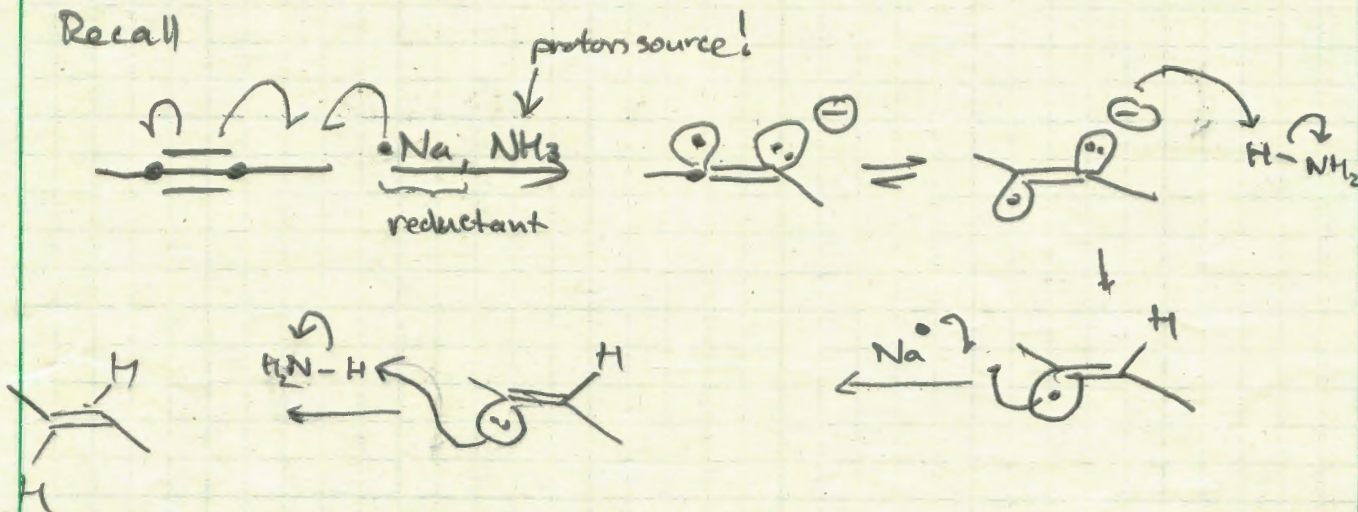 Recall
proton source!
•Na, NH3
reductant
H-NH2
H
Na•
H
H2N-H
H
H